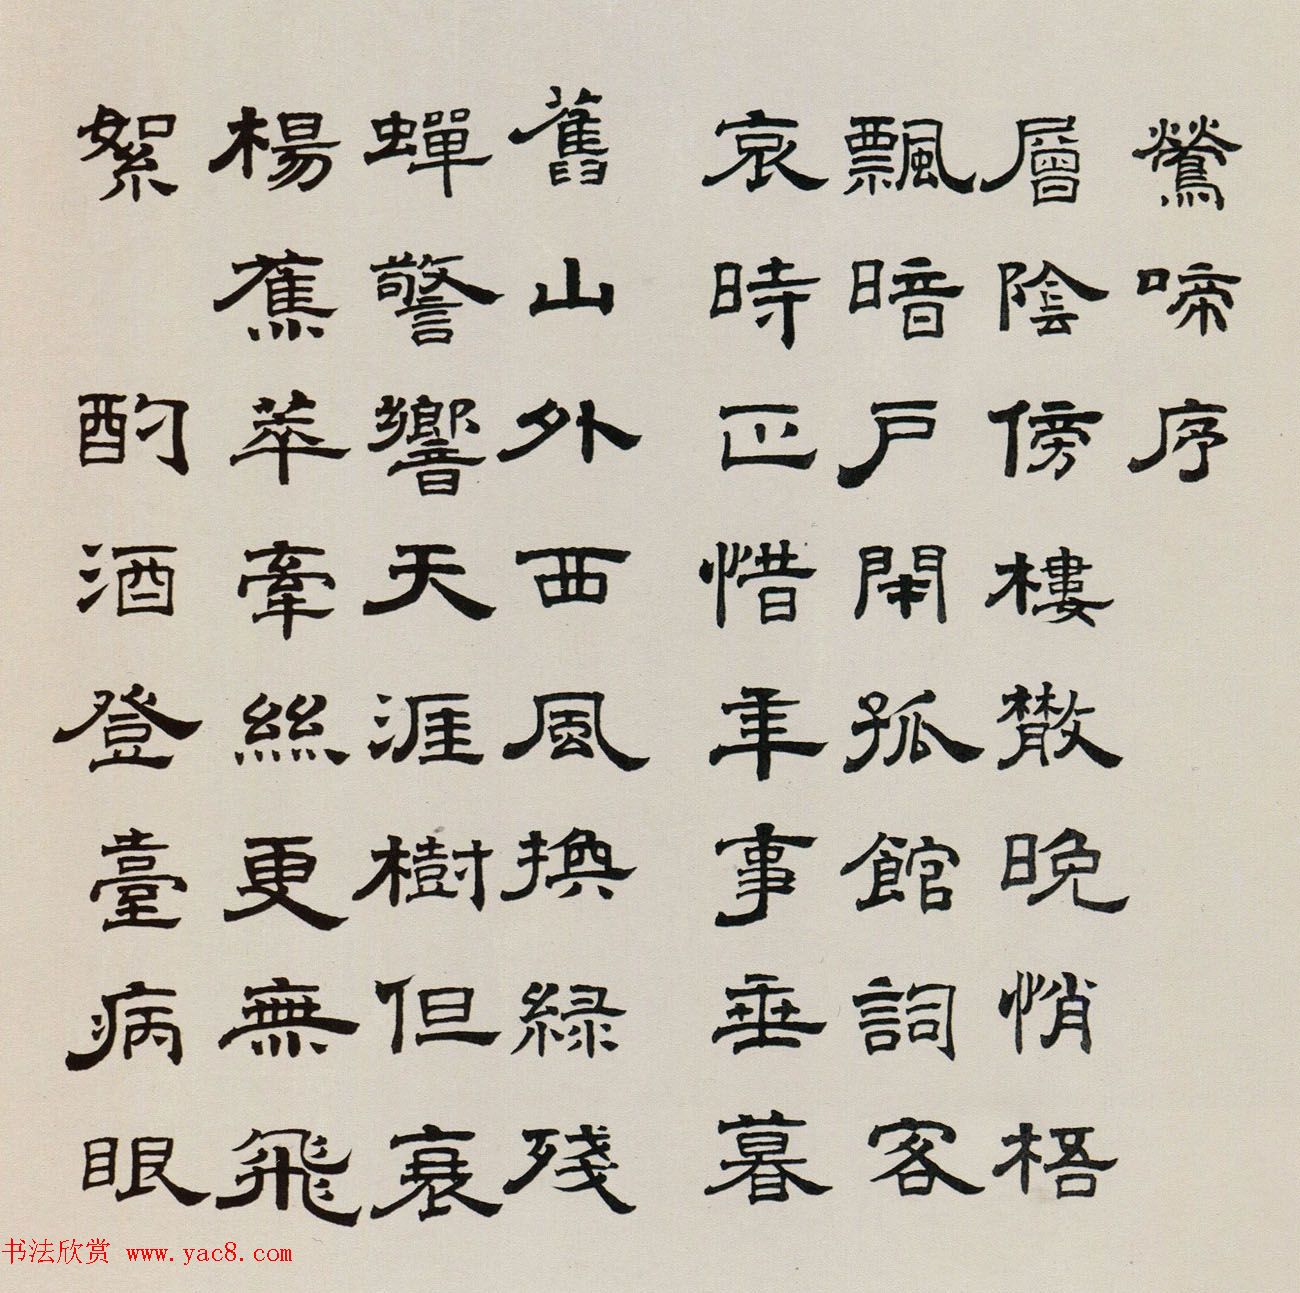 鶯啼序
層陰傍樓散晚悄梧
飄暗戶閉孤館詞客
哀時正惜年事垂暮
舊山外西風換緑殘
蟬警響天涯樹但衰
楊蕉萃牽絲更無飛
絮 酌酒登臺病眼
书法欣赏 www.yac8.com